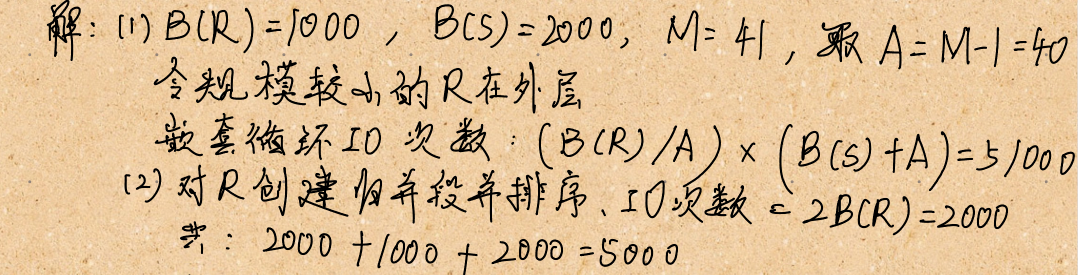 解：(1) B(R)=1000 ， B(S)=2000， M=41 ，取 A=M-1=40
令规模较小的R在外层
嵌套循环IO 次数：(B(R)/A)×(B(S)+A)=51000
(2) 对R创建归并段并排序、IO次数=2B(R)=2000
共：2000+1000+2000=5000